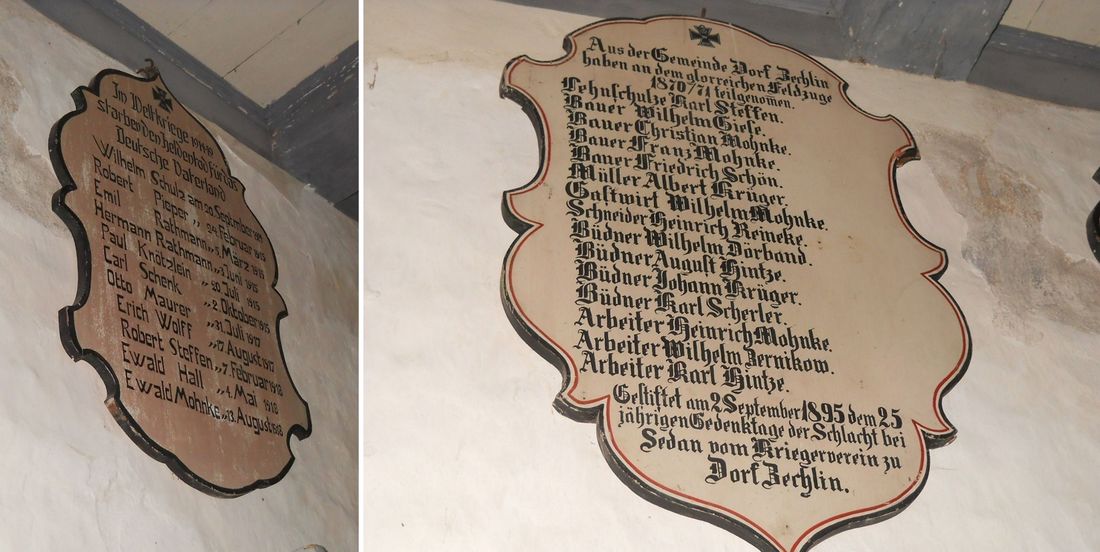 Im Weltkriege 1914-18
starben den Heldentod für das
Deutsche Vaterland
Wilhelm Schulz am 20. September 1914
Robert Pieper „ 24. Februar 1915
Emil Rathmann „ 5. März 1915
Hermann Rathmann „ 3. Juni 1915
Paul Knötzlein „ 20. Juli 1915
Carl Schenk „ 2. Oktober 1915
Otto Maurer „ 31. Juli 1917
Erich Wolff „ 17. August 1917
Robert Steffen „ 7. Februar 1918
Ewald Hall „ 4. Mai 1918
Ewald Mohnke „ 13. August 1918
Aus der Gemeinde Dorf Zechlin
haben an dem glorreichen Feldzuge
1870/71 teilgenomen.
Lehnschulze Karl Steffen.
Bauer Wilhelm Giese.
Bauer Christian Mohnke.
Bauer Franz Mohnke.
Bauer Friedrich Schön.
Müller Albert Krüger.
Gastwirt Wilhelm Mohnke.
Schneider Heinrich Reineke.
Büdner Wilhelm Dörband.
Büdner August Hintze.
Büdner Johann Krüger.
Büdner Karl Scherler.
Arbeiter Heinrich Mohnke.
Arbeiter Wilhelm Zernikow.
Arbeiter Karl Hintze.
Gestiftet am 2 September 1895 dem 25
jährigen Gedenktage der Schlacht bei
Sedan vom Kriegerverein zu
Dorf Zechlin.